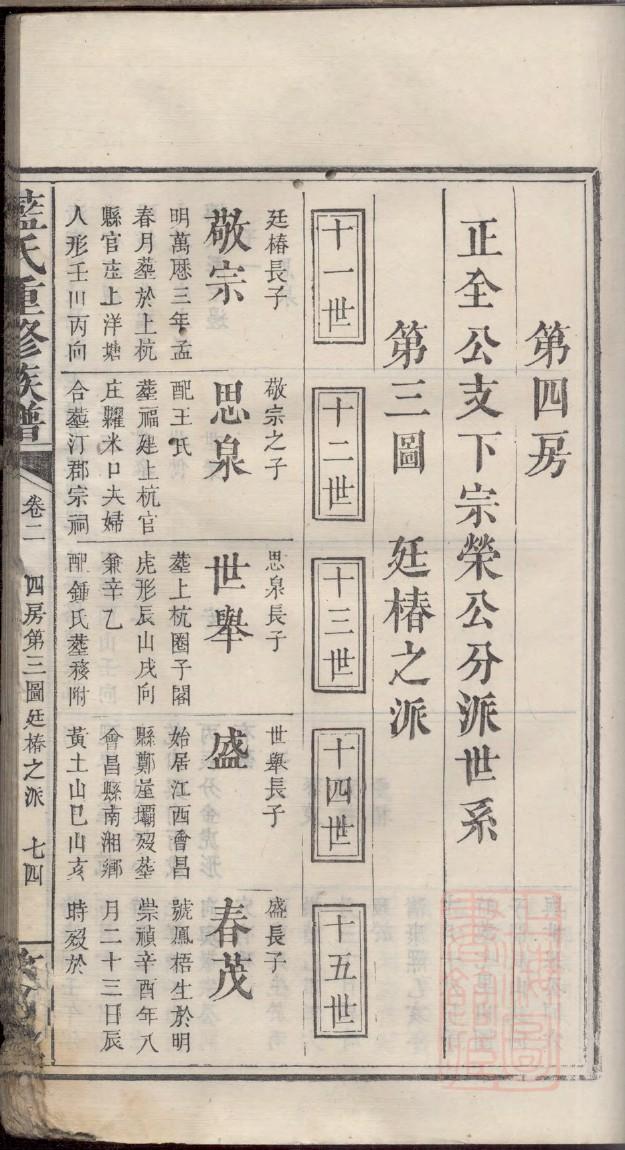 第四房
正全公支下宗榮公分派世系
第三圖　廷椿之派
十一世
十二世
十三世
十四世
十五世
廷椿長子
敬宗
明萬曆三年孟
春月塟於上杭
縣官庄上洋塘
人形壬山丙向
敬宗之子
思泉
配王氏
塟福建上杭官
庄糶米口夫婦
合塟汀郡宗祠
思泉長子
世舉
塟上杭圈子閣
虎形辰山戌向
兼辛乙
配鍾氏塟附
世舉長子
盛
始居江西會昌
縣鄭壩歿塟
會昌縣南湘鄉
黃土山巳山亥
盛長子
春茂
號鳳梧生於明
崇禎辛酉年八
月二十三日辰
時歿於
藍氏重修族譜
卷二
四房第三圖廷椿之派
七四